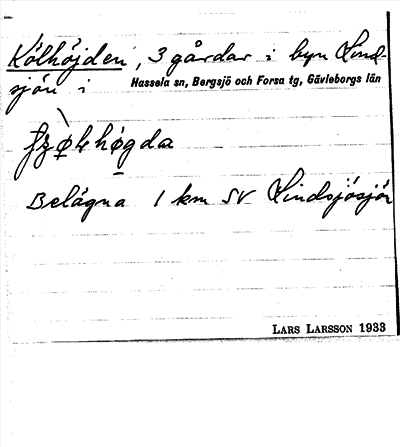 Kölhöjden, 3 gårdar i byn Lind-
sjön i Hassela sn, Bergsjö och Forsa tg, Gävleborgs län
Belägna 1 km SV Lindsjösjön
LARS LARSSON 1933